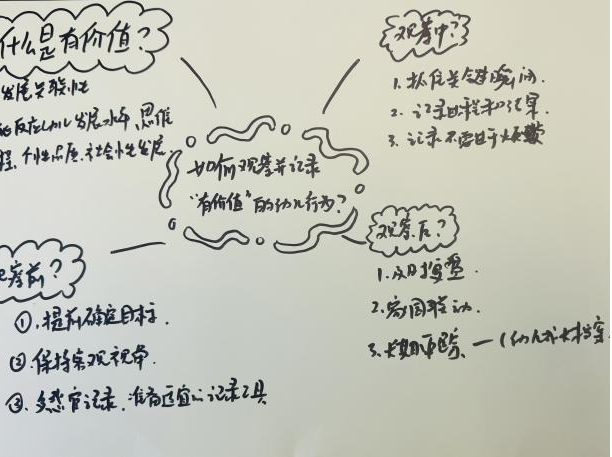 什么是有价值？
发展关联性
反应幼儿发展水平 思维
程、个性品质、社会性发展
如何观察并记录
"有价值"的幼儿行为？
观察中？
1. 抓住关键瞬间.
2. 记录过程和结果.
3. 记录不要
观察前？
①. 提前确定目标.
② 保持客观视角.
③. 记录. 准备适宜的记录工具
观察后？
1. 及时整理.
2. 家园联动.
3. 长期跟踪. — (幼儿成长档案